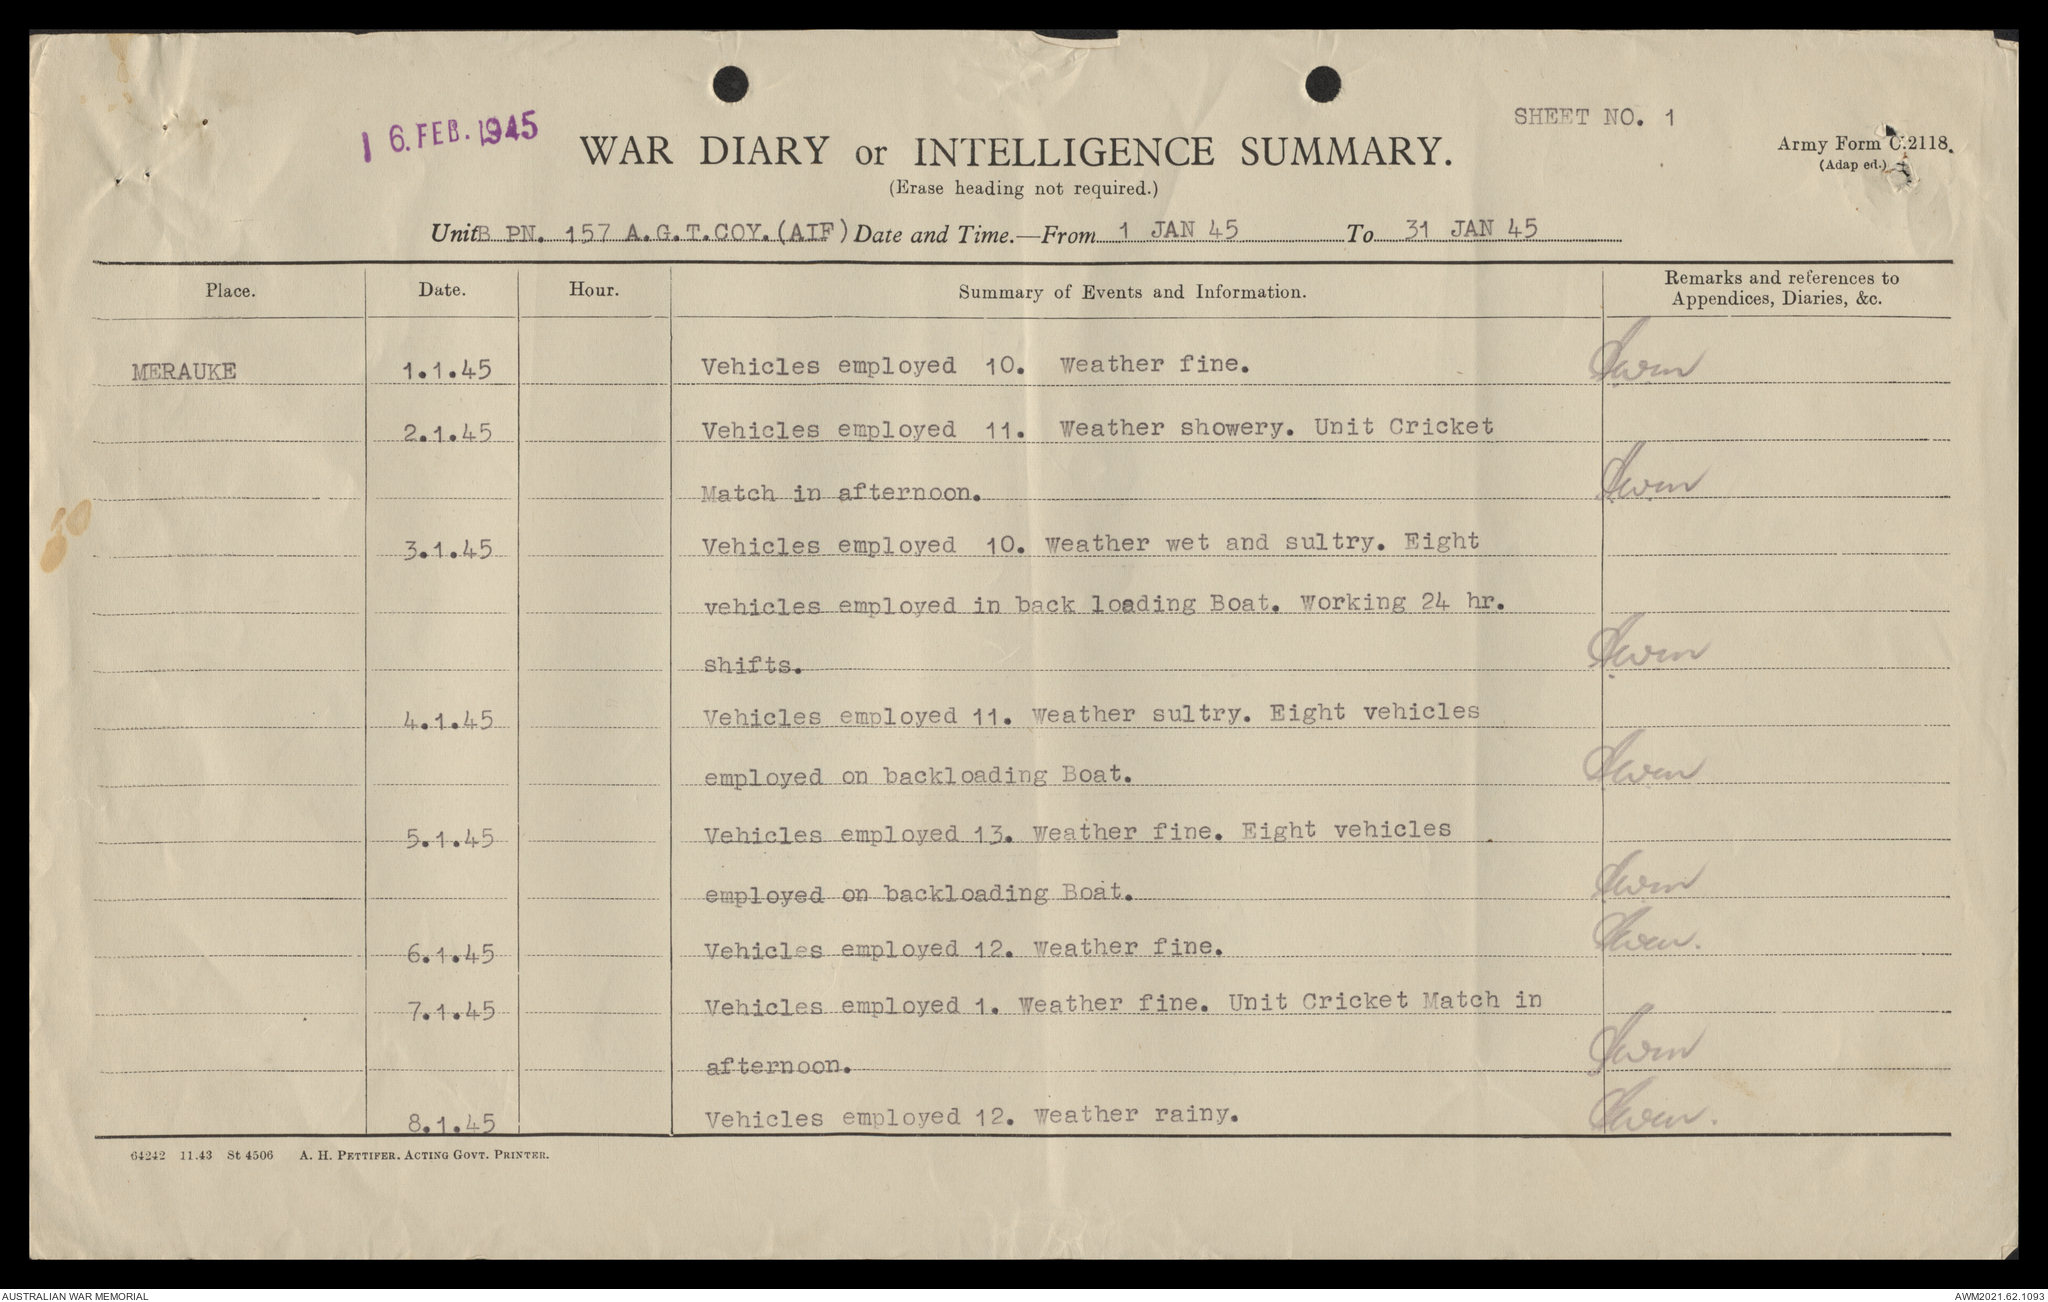 SHEET NO. 1
16. FEB. 1945
WAR DIARY or INTELLIGENCE SUMMARY.
Army Form C.2118.
(Adap ed.)
(Erase heading not required.)
Unit B PN. 157 A.G.T.COY.(AIF) Date and Time.—From 1 JAN 45 To 31 JAN 45
Place. Date. Hour. Summary of Events and Information. Remarks and references to
Appendices, Diaries, &c.
MERAUKE 1.1.45 Vehicles employed 10. Weather fine.
2.1.45 Vehicles employed 11. Weather showery. Unit Cricket
Match in afternoon.
3.1.45 Vehicles employed 10. Weather wet and sultry. Eight
vehicles employed in back loading Boat. Working 24 hr.
shifts.
4.1.45 Vehicles employed 11. Weather sultry. Eight vehicles
employed on backloading Boat.
5.1.45 Vehicles employed 13. Weather fine. Eight vehicles
employed on backloading Boat.
6.1.45 Vehicles employed 12. Weather fine.
7.1.45 Vehicles employed 1. Weather fine. Unit Cricket Match in
afternoon.
8.1.45 Vehicles employed 12. Weather rainy.
64242 11.43 St 4506 A. H. PETTIFER. ACTING GOVT. PRINTER.
AUSTRALIAN WAR MEMORIAL
AWM2021.62.1093